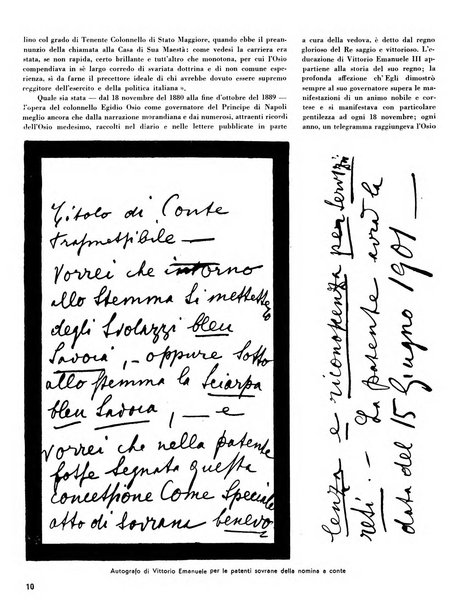 lino col grado di Tenente Colonnello di Stato Maggiore, quando ebbe il prean-
nunzio della chiamata alla Casa di Sua Maestà: come vedesi la carriera era
stata, se non rapida, certo brillante e tutt'altro che monotona, per cui l'Osio
compendiava in sè largo corredo di svariata dottrina e di non comune esperien-
za, sì da farne il precettore ideale di chi avrebbe dovuto essere supremo
reggitore dell'esercito e della politica italiana ».
Quale sia stata — dal 18 novembre del 1880 alla fine d'ottobre del 1889 —
l'opera del colonnello Egidio Osio come governatore del Principe di Napoli
meglio ancora che dalla narrazione morandiana e dai numerosi, attraenti ricordi
dell'Osio medesimo, raccolti nel diario e nelle lettere pubblicate in parte
a cura della vedova, è detto dal regno
glorioso del Re saggio e vittorioso. L'e-
ducazione di Vittorio Emanuele III ap-
partiene alla storia del suo regno; la
profonda affezione ch'Egli dimostrò
sempre al suo governatore supera le ma-
nifestazioni di un animo nobile e cor-
tese e si manifestava con particolare
gentilezza ad ogni 18 novembre; ogni
anno, un telegramma raggiungeva l'Osio
Titolo di Conte
Trasmessibile —
Vorrei che intorno
allo Stemma si mettesse
degli Svolazzi bleu
Savoia, - oppure sotto
allo stemma la Sciarpa
bleu Savoia, — e
Vorrei che nella patente
fosse segnata questa
concessione Come Speciale
atto di Sovrana benevo
lenza e riconoscenza per servizi
resi. — La patente avrà la
data del 15 Giugno 1901 —
Autografo di Vittorio Emanuele per le patenti sovrane della nomina a conte
10